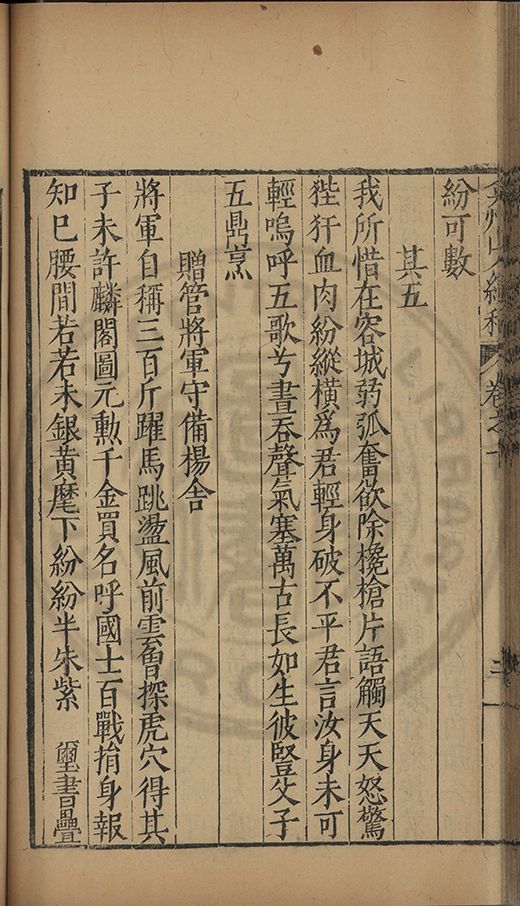 紛可數
其五
我所惜在容城弱弧奮欲除欃槍片語觸天天怒驚
狴犴血肉紛縱橫爲君輕身破不平君言汝身未可
輕嗚呼五歌兮晝吞聲氣塞萬古長如生彼豎父子
五鼎烹
贈管將軍守備楊舍
將軍自稱三百斤躍馬跳盪風前雲曾探虎穴得其
子未許麟閣圖元勳千金買名呼國士百戰捐身報
知巳腰間若若未銀黃麾下紛紛半朱紫 璽書疊